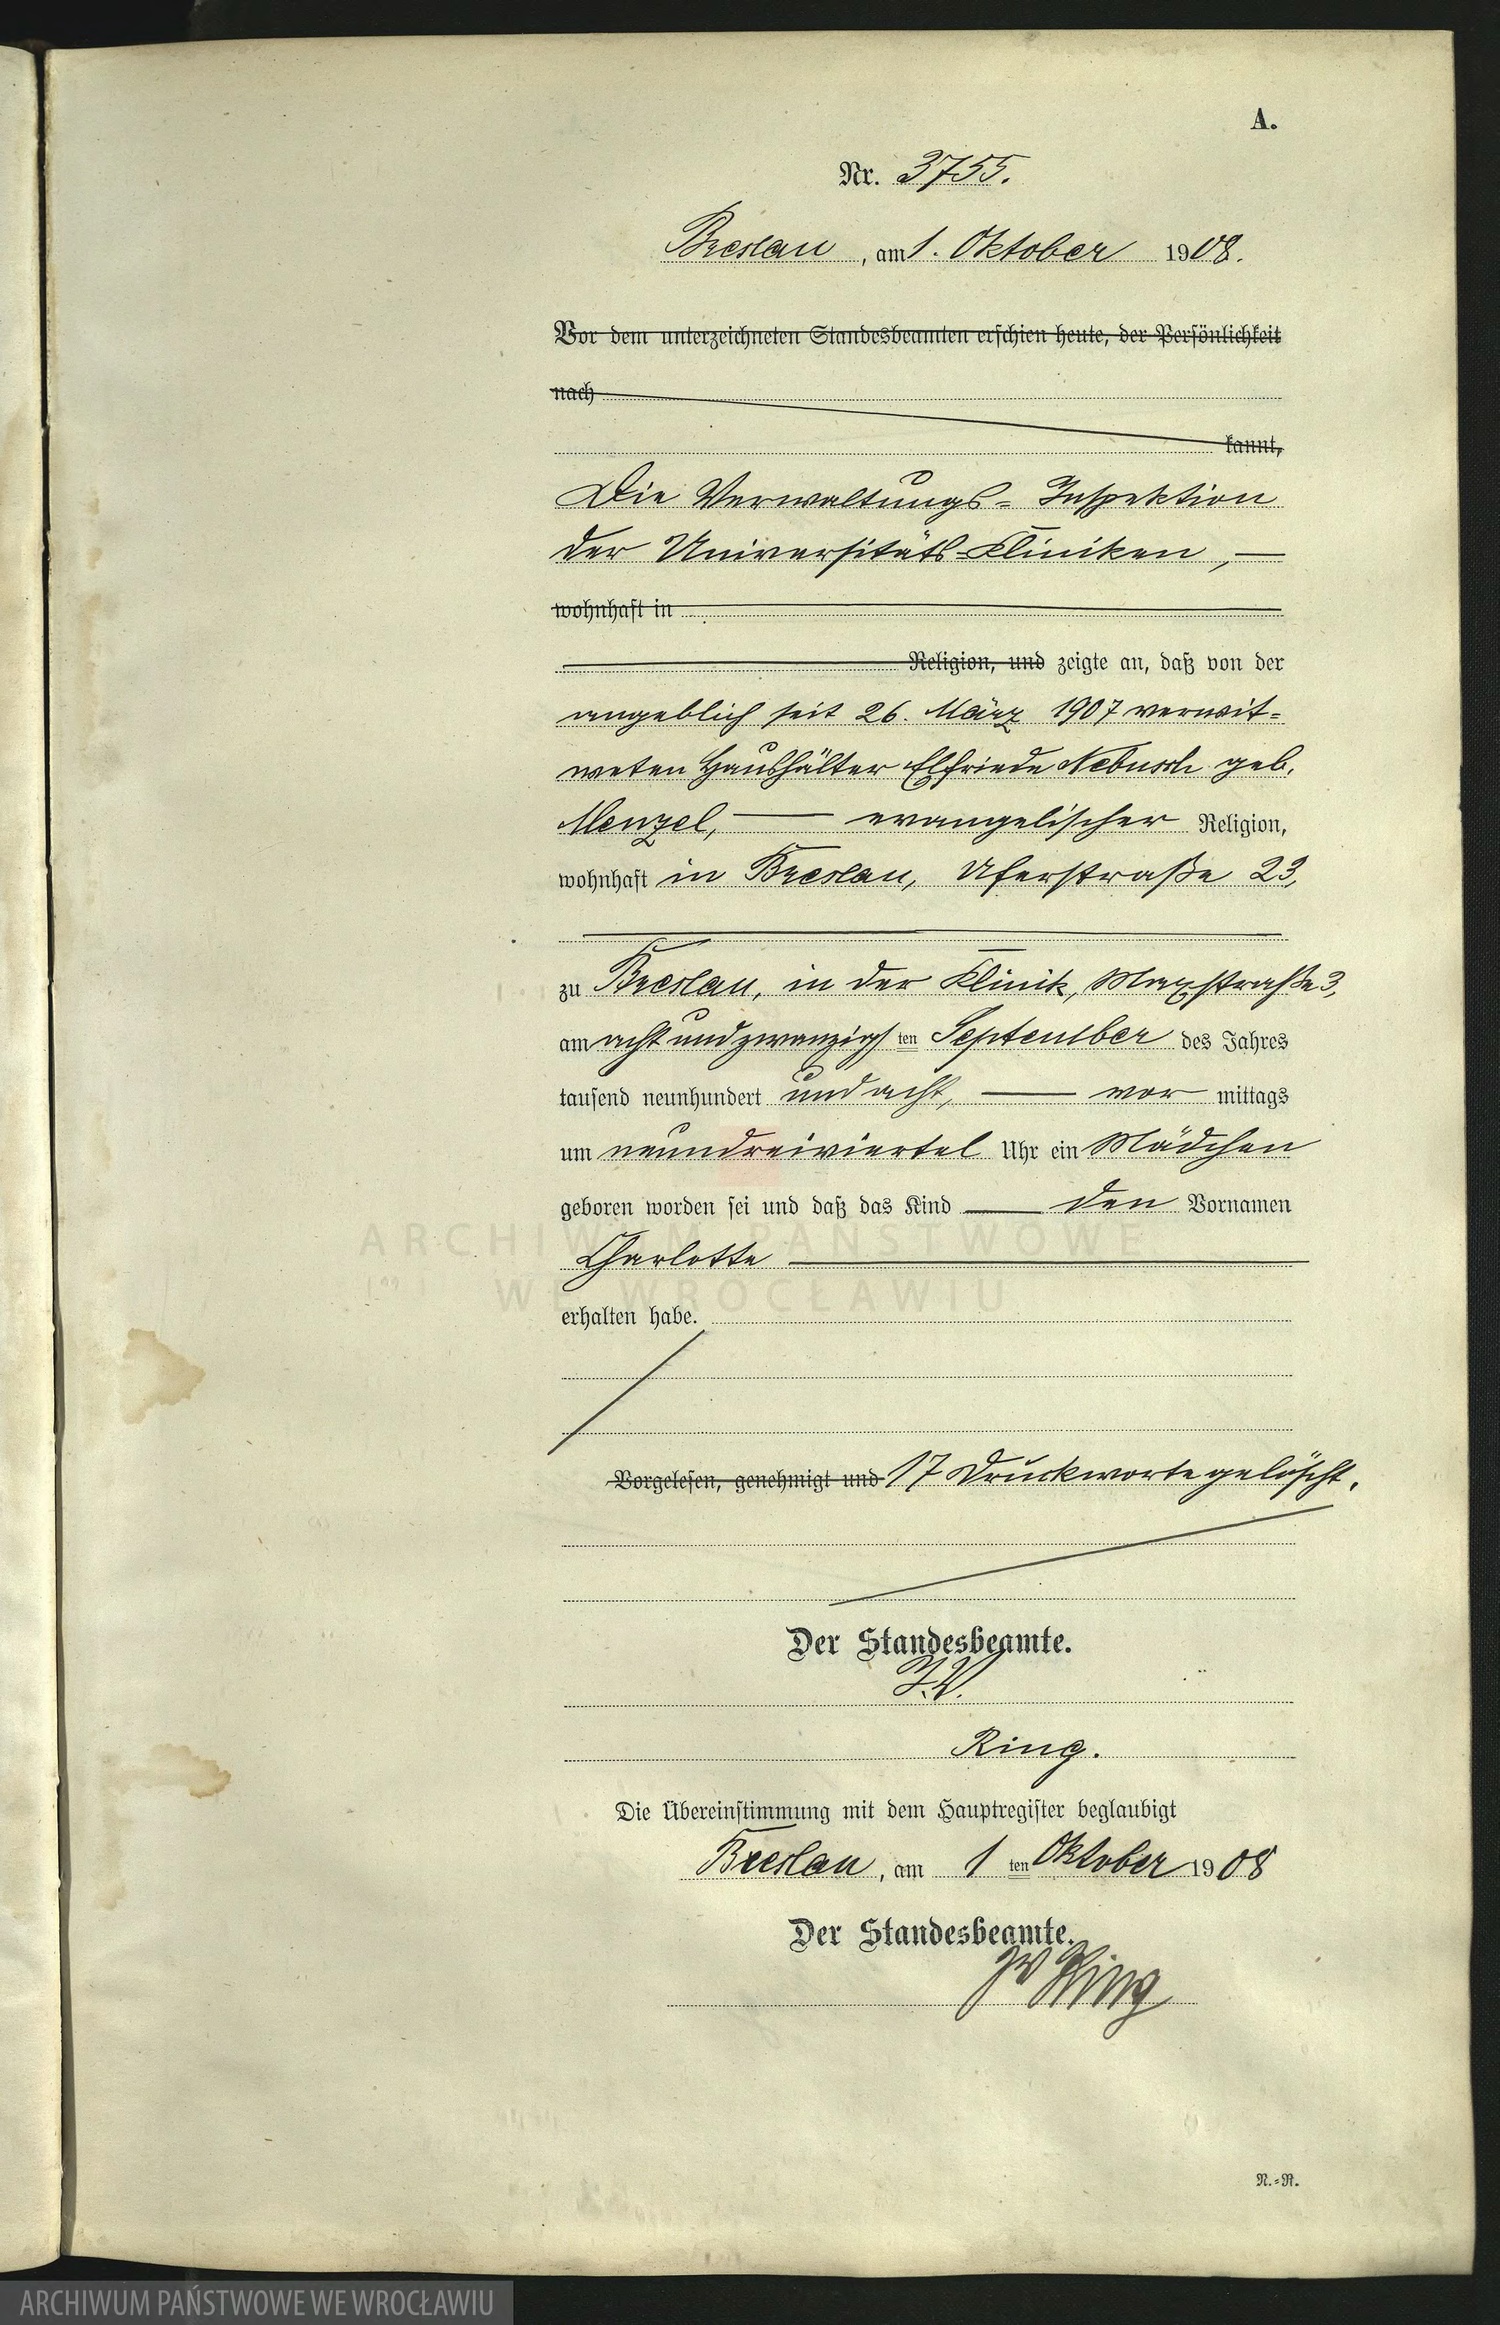 A.
Nr. 3755.
Breslau, am 1. Oktober 1908.
Vor dem unterzeichneten Standesbeamten erschien heute, der Persönlichkeit
nach
kannt,
Die Verwaltungs-Inspektion
der Universitäts-Kliniken,
wohnhaft in
Religion, und zeigte an, daß von der
angeblich seit 26. März 1907 verwit-
weten Haushälter Elfriede Nebusch geb.
Menzel, evangelischer Religion,
wohnhaft in Breslau, Uferstraße 23,
zu Breslau, in der Klinik, Maxstraße 3,
am acht und zwanzigsten September des Jahres
tausend neunhundert und acht, vor mittags
um neundreiviertel Uhr ein Mädchen
geboren worden sei und daß das Kind den Vornamen
Charlotte
erhalten habe.
Vorgelesen, genehmigt und 17 Druckworte gelöscht.
Der Standesbeamte.
J.V.
Ring.
Die Übereinstimmung mit dem Hauptregister beglaubigt
Breslau, am 1 ten Oktober 1908
Der Standesbeamte.
JV Ring
N.=R.
ARCHIWUM PAŃSTWOWE
WE WROCŁAWIU
ARCHIWUM PAŃSTWOWE WE WROCŁAWIU